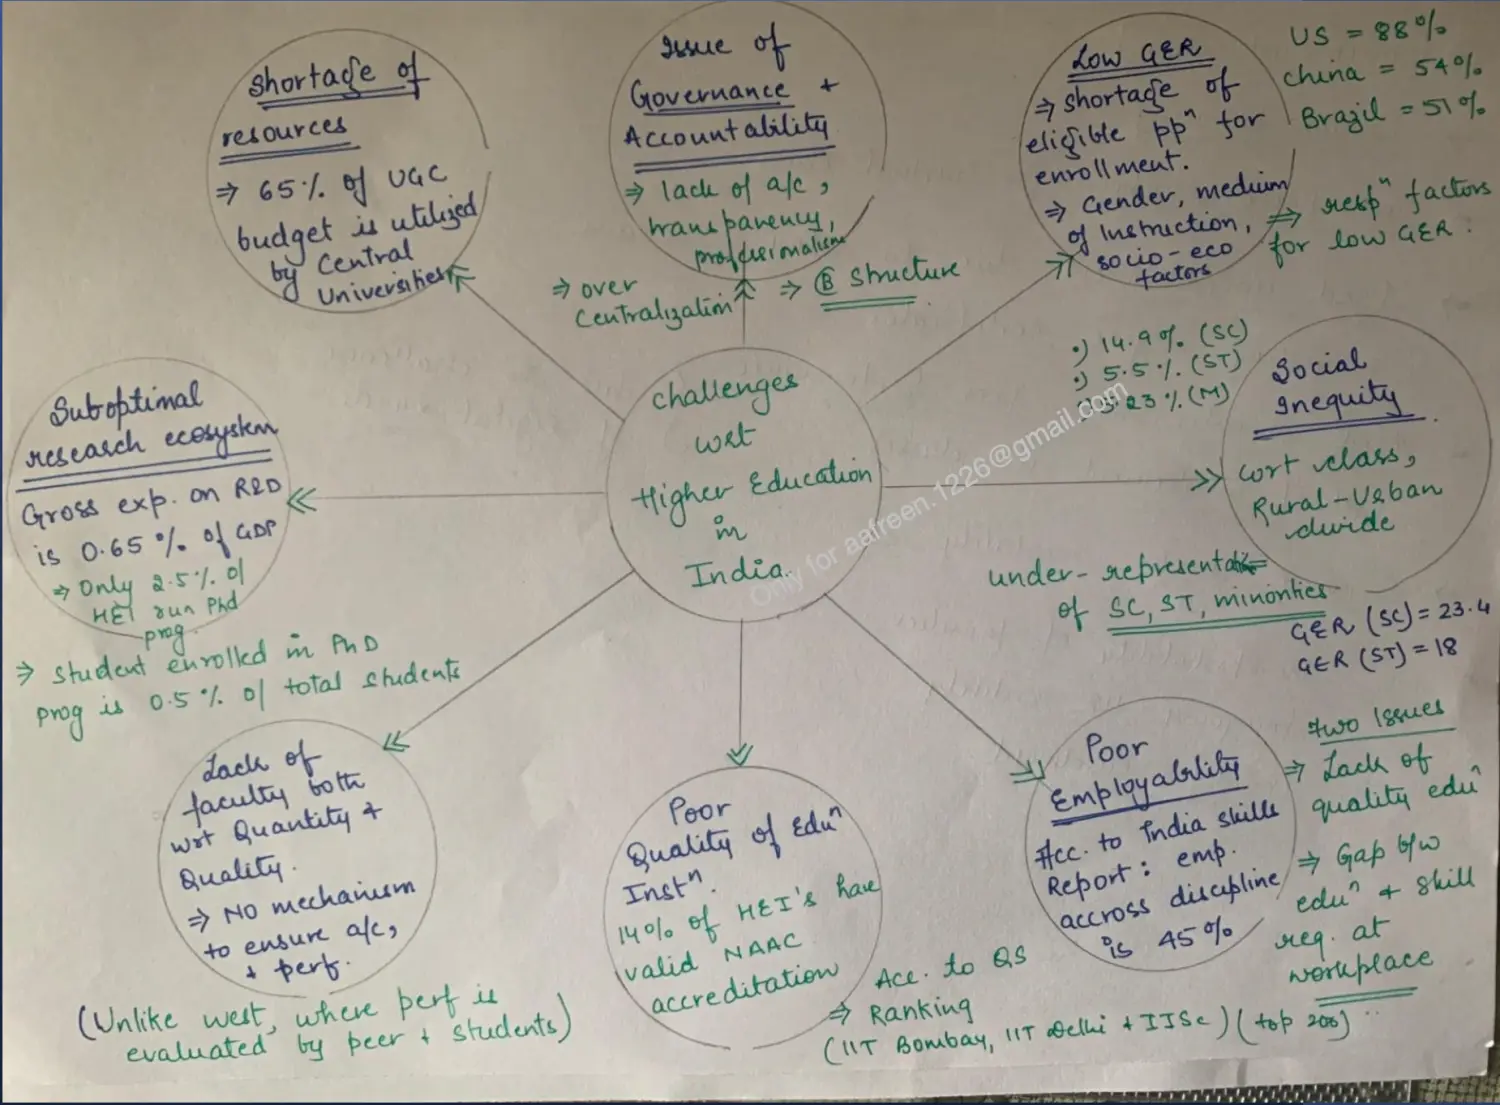 Shortage of
resources
⇒ 65% of UGC
budget is utilized
by Central
Universities
Issue of
Governance +
Accountability
⇒ lack of a/c,
transparency,
professionalism
⇒ over
Centralization
⇒ Ⓑ Structure
Low GER
⇒ shortage of
eligible ppⁿ for
enrollment.
⇒ Gender, medium
of Instruction,
socio-eco
factors
US = 88%
China = 54%
Brazil = 51%
⇒ respⁿ factors
for low GER :
Suboptimal
research ecosystem
Gross exp. on R&D
is 0.65 % of GDP
⇒ Only 2.5% of
HEI run Phd
prog.
⇒ Student enrolled in PhD
prog is 0.5 % of total students
Challenges
wrt
Higher Education
in
India.
•) 14.9%. (SC)
•) 5.5%. (ST)
23 % (M)
Social
Inequity
wrt class,
Rural-Urban
divide
under-
of SC, ST, minorities
GER (SC) = 23.4
GER (ST) = 18
Lack of
faculty both
wrt Quantity +
Quality.
⇒ NO mechanism
to ensure a/c,
+ perf.
(Unlike west, where perf is
evaluated by peer + students)
Poor
Quality of Eduⁿ
Instⁿ.
14% of HEI's have
valid NAAC
accreditation
Acc. to QS
⇒ Ranking
(IIT Bombay, IIT Delhi + IISc) (top 200)
Poor
Employability
Acc. to India skills
Report : emp.
accross discipline
is 45%
Two Issues
⇒ Lack of
quality eduⁿ
⇒ Gap b/w
eduⁿ + skill
req. at
workplace
Only for aafreen.1226@gmail.com